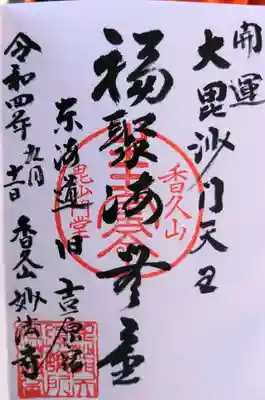 開運
大毘沙門天王
福聚海無量
東海道旧吉原宿
香久山妙法寺
令和四年九月十一日
香久山
毘沙門堂